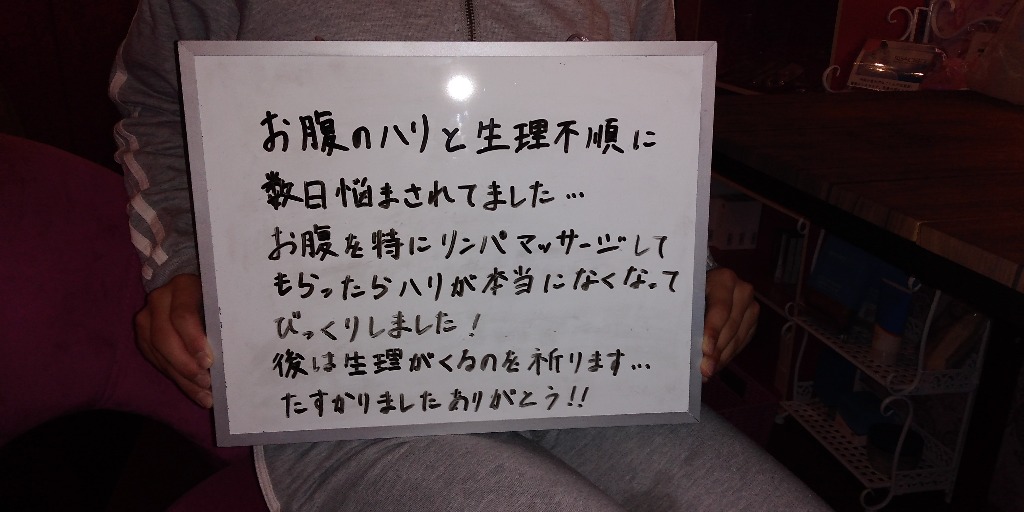 お腹のハリと生理不順に
数日悩まされてました…
お腹を特にリンパマッサージして
もらったらハリが本当になくなって
びっくりしました!
後は生理がくるのを祈ります…
たすかりましたありがとう!!